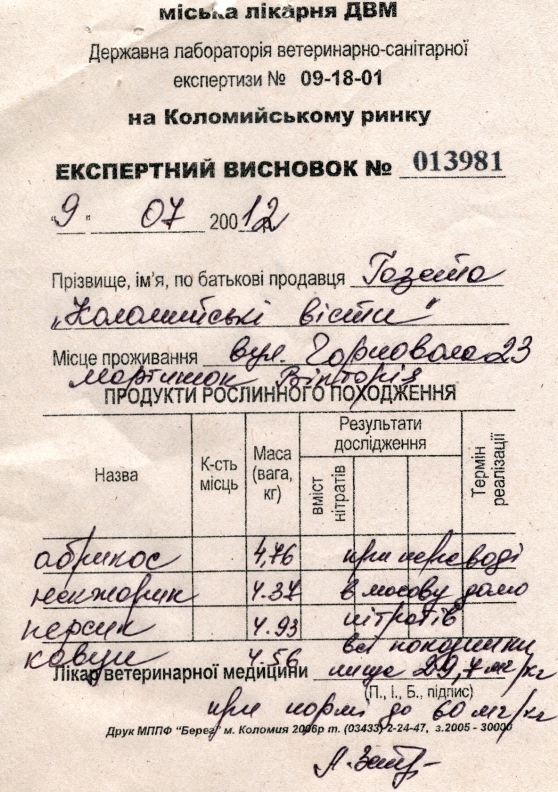 міська лікарня ДВМ
Державна лабораторія ветеринарно-санітарної
експертизи № 09-18-01
на Коломийському ринку
ЕКСПЕРТНИЙ ВИСНОВОК № 013981
"9" 07 200 12 р.
Прізвище, ім'я, по батькові продавця Газета
"Коломийські вісти"
Місце проживання вул. Чорновола 23
Мартинюк Вікторія
ПРОДУКТИ РОСЛИННОГО ПОХОДЖЕННЯ
Назва
К-сть місць
Маса (вага, кг)
Результати дослідження
вміст нітратів
Термін реалізації
абрикос 4,76 при переводі
4.37 в масову долю
персик 4.93 нітратів
кавун 4.56 всі показники
Лікар ветеринарної медицини лише 29,7 мг/кг
(П., І., Б., підпис)
при нормі до 60 мг/кг
Друк МППФ "Берег" м. Коломия 2006р т. (03433) 2-24-47, з.2005 - 30000